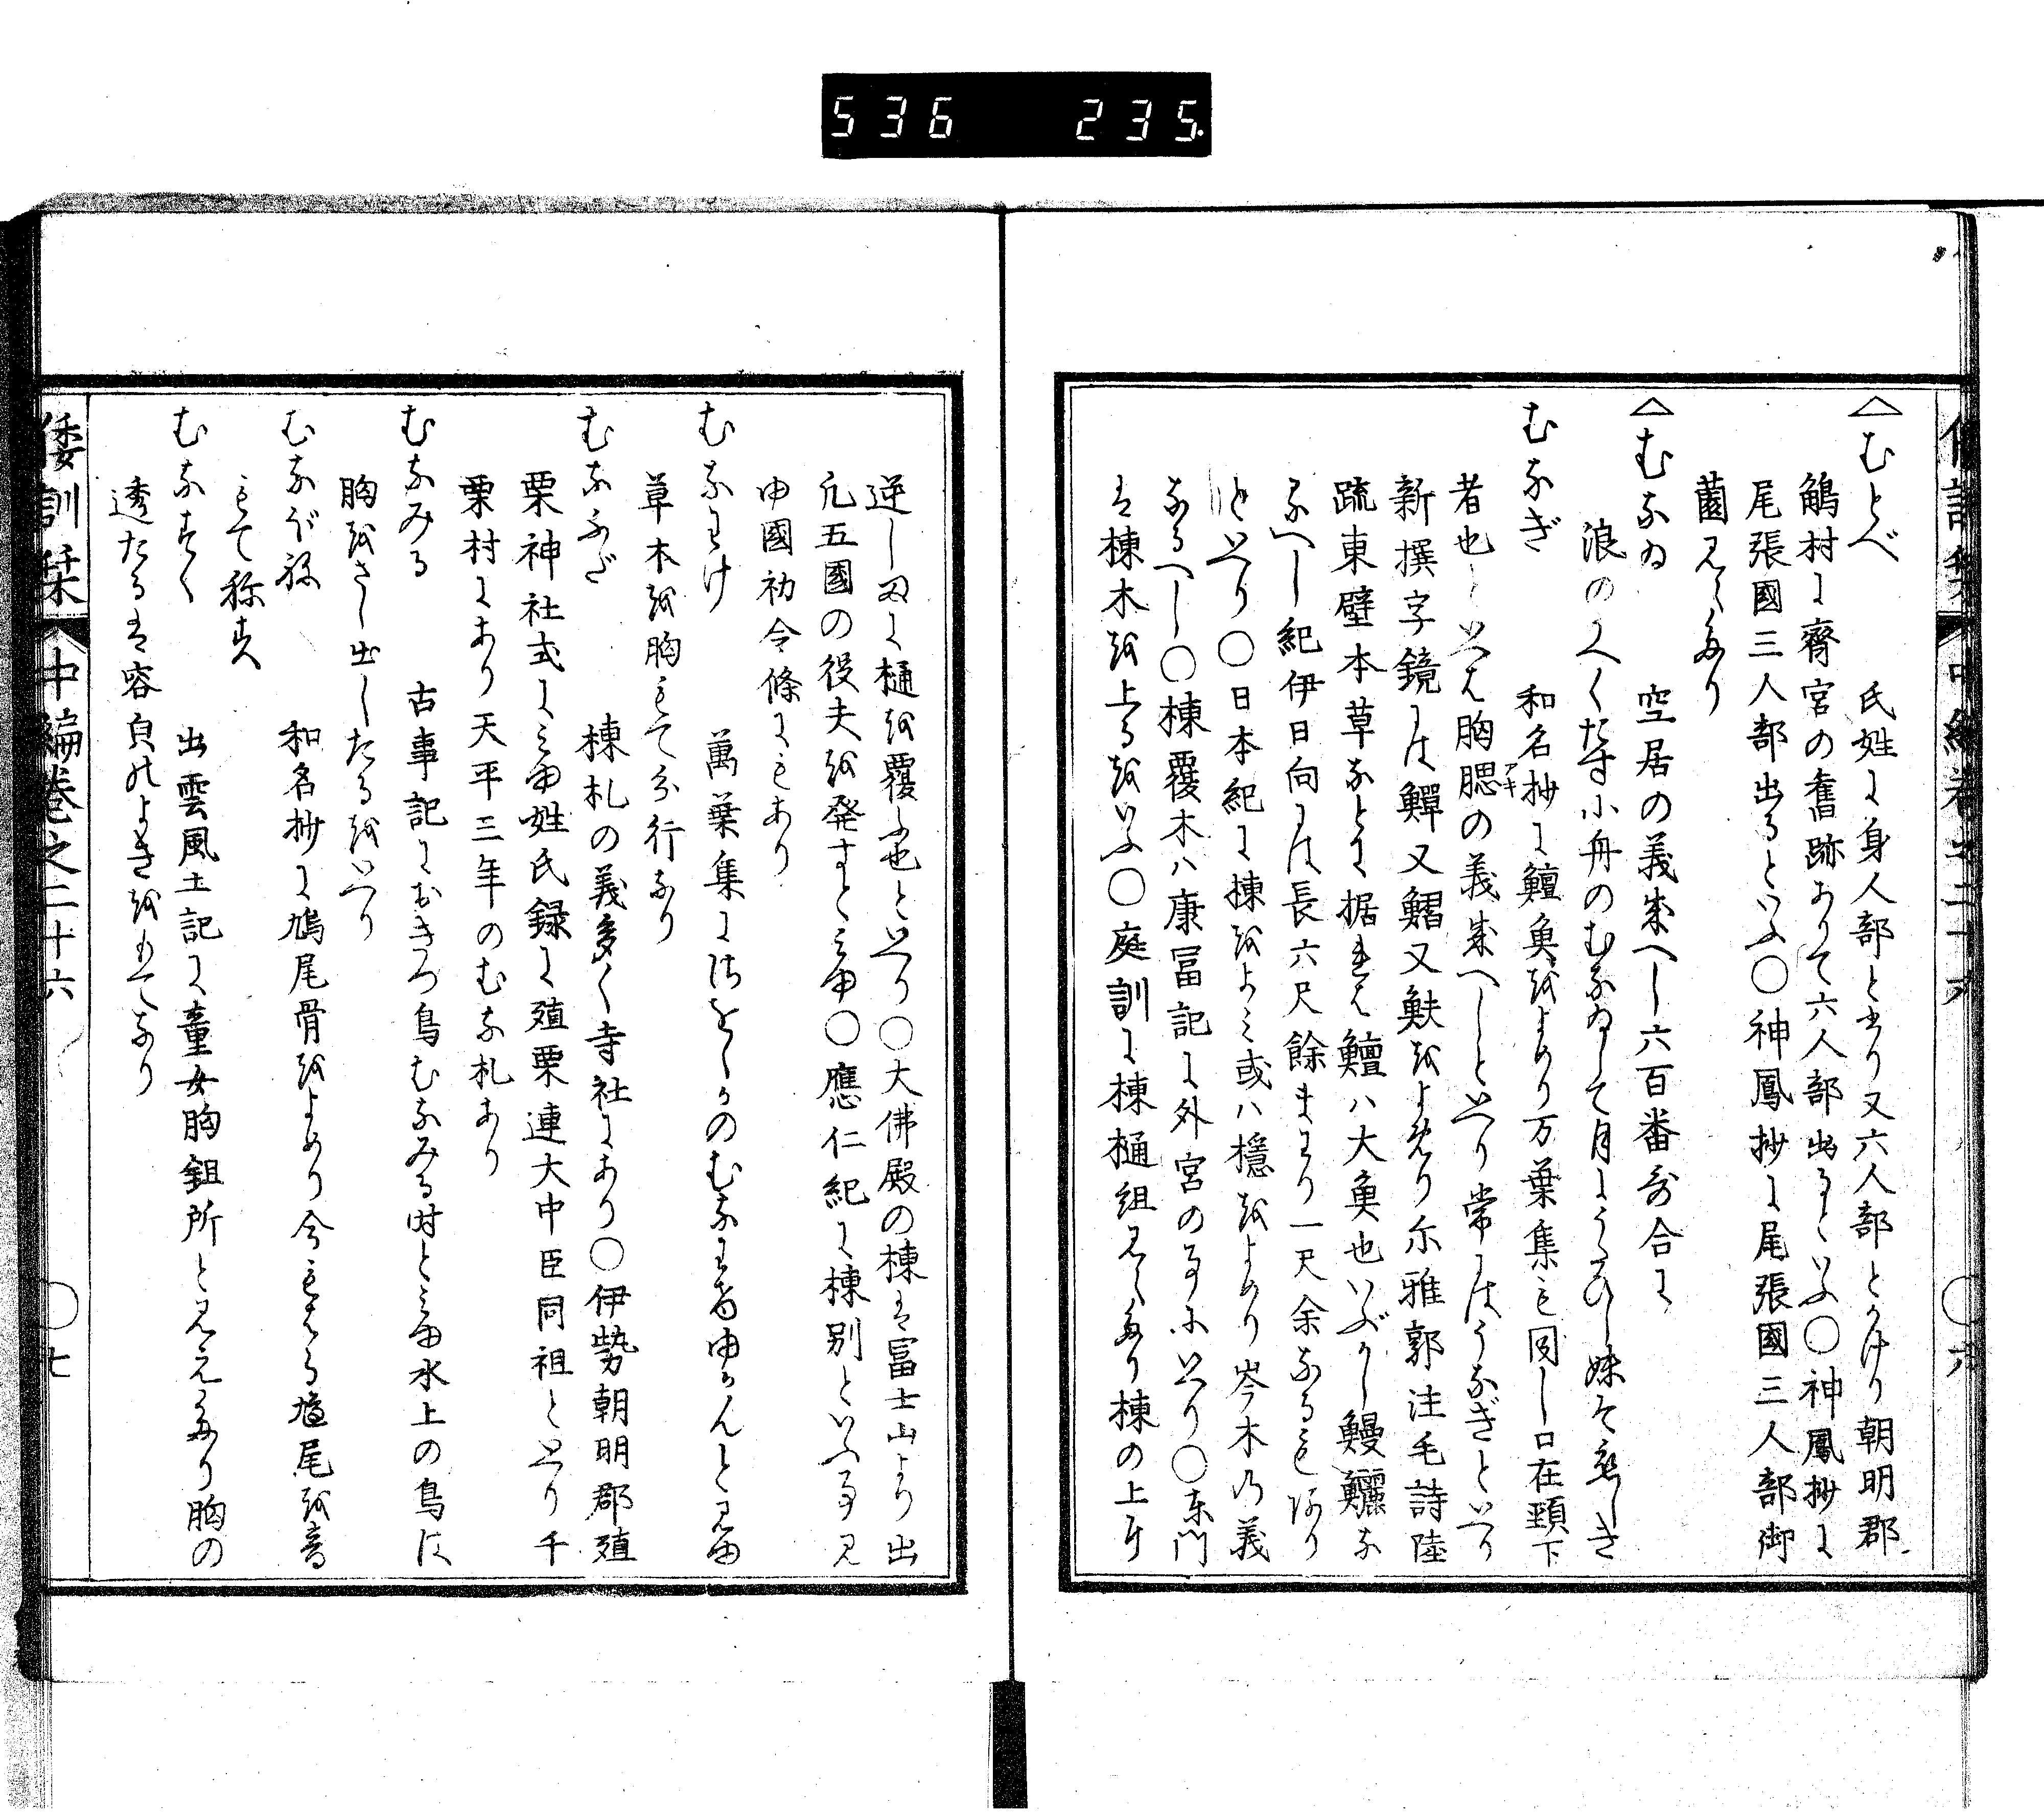 536 235
△むとべ 氏姓に身人部と書り又六人部とかけり朝明郡
鵤村に齋宮の舊跡ありて六人部出るといふ○神鳳抄に
尾張國三人部出るといふ○神鳳抄に尾張國三人部御
薗見えたり
△むなゐ 空居の義成へし六百番哥合に
浪の上にくたす小舟のむなゐして月にうたひし妹そ恋しき
むなぎ 和名抄に鱣魚をよめり万葉集も同し口在頸下
者也といへは胸腮の義成へしといへり常にはうなぎといへり
アキ
新撰字鏡には鱓又鰼又鮇をよめり尓雅郭注毛詩陸
疏東壁本草なとに据れは鱣ハ大魚也いぶかし鰻鱺な
るへし紀伊日向には長六尺餘まはり一尺余なるも有り
といへり○日本紀に棟をよミ或ハ檼をよめり岑木の義
なるへし○棟覆木ハ康冨記に外宮の事にいへり○東門
は棟木を上るをいふ○庭訓に棟樋組見えたり棟の上に
逆しまに樋を覆ふ也といへり○大佛殿の棟は富士山より出
凡五國の役夫を発すと見ゆ○應仁紀に棟別といふ事見
ゆ國初令條にもあり
むなわけ 萬葉集にさをしかのむなわけゆかんと見ゆ
草木を胸もて分行なり
むなふだ 棟札の義多く寺社にあり○伊勢朝明郡殖
栗神社式に見ゆ姓氏録に殖栗連大中臣同祖といへり千
栗村にあり天平三年のむな札あり
むなみる 古事記におきつ鳥むなみる時と見ゆ水上の鳥は
胸をさし出したるをいへり
むなぼね 和名抄に鳩尾骨をよめり今もはる鳩尾を音
もて称す
むなすく 出雲風土記に童女胸鉏所と見えたり胸の
透たるは容貞のよきをもてなり
倭訓栞 中編巻之二十六 ○七